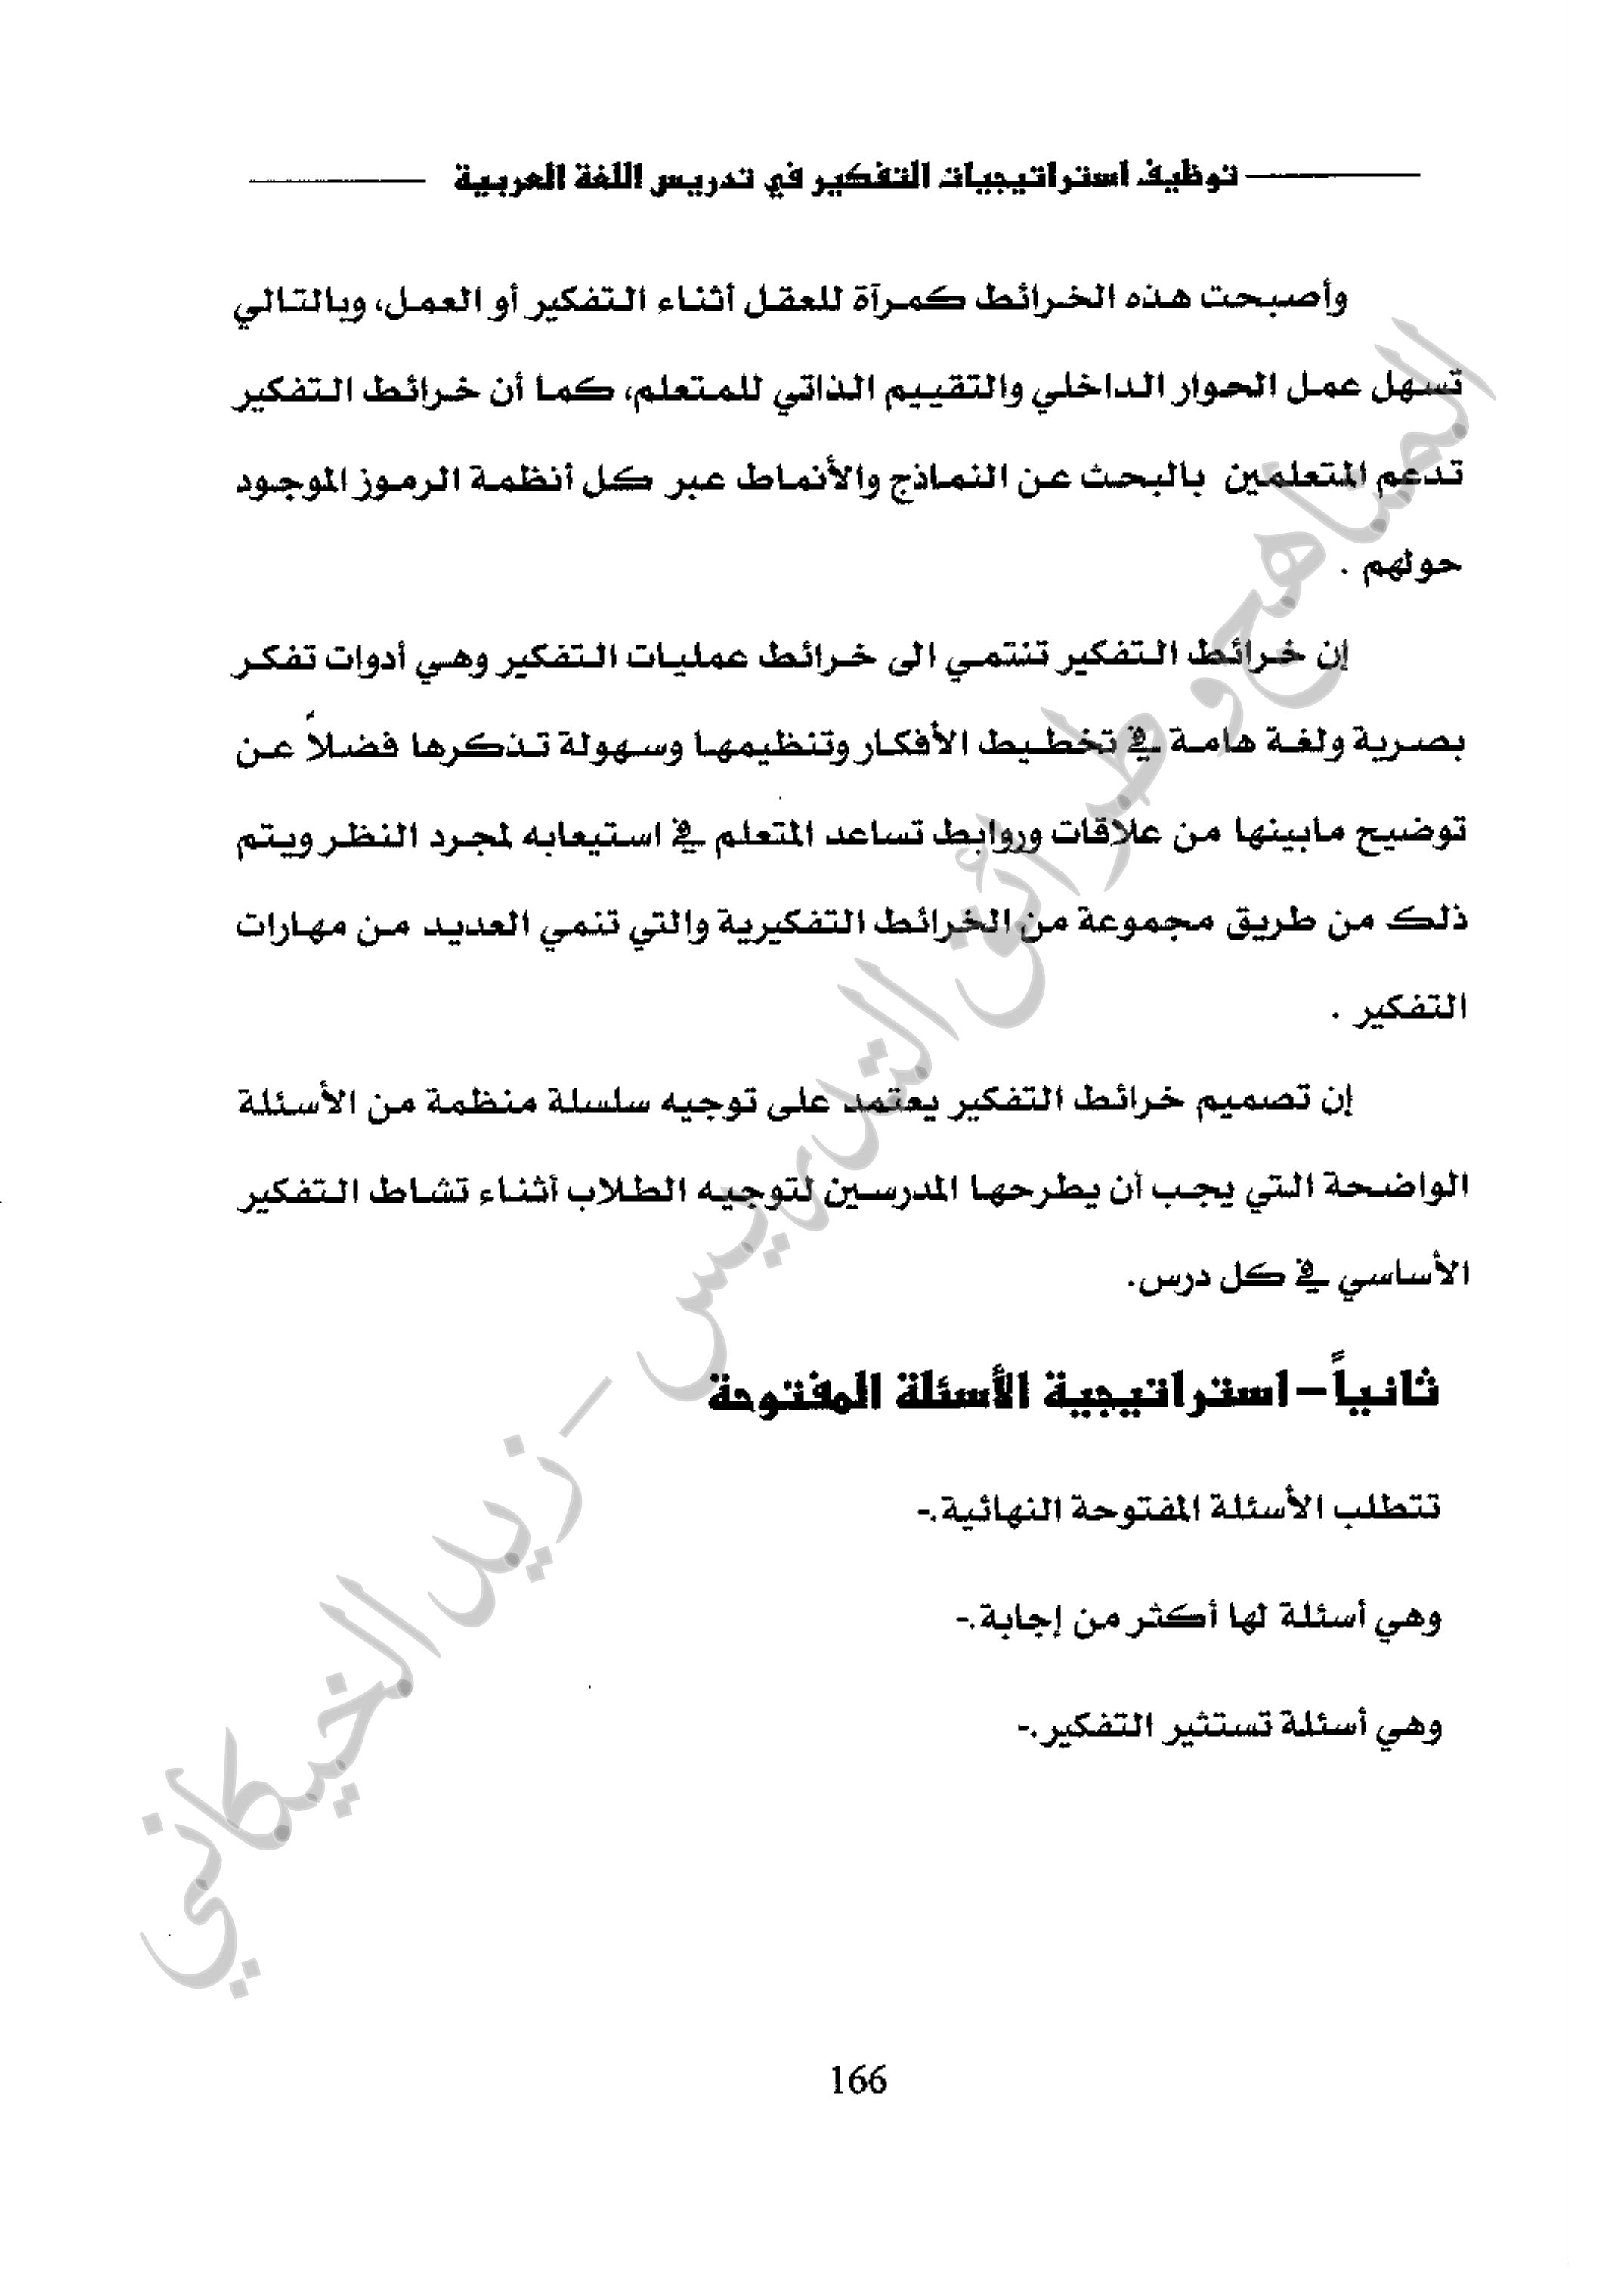 توظيف استراتيجيات التفكير في تدريس اللغة العربية
وأصبحت هذه الخرائط كمرآة للعقل أثناء التفكير أو العمل، وبالتالي
تسهل عمل الحوار الداخلي والتقييم الذاتي للمتعلم، كما أن خرائط التفكير
تدعم المتعلمين بالبحث عن النماذج والأنماط عبر كل أنظمة الرموز الموجود
حولهم .
إن خرائط التفكير تنتمي الى خرائط عمليات التفكير وهي أدوات تفكر
بصرية ولغة هامة في تخطيط الأفكار وتنظيمها وسهولة تذكرها فضلاً عن
توضيح مابينها من علاقات وروابط تساعد المتعلم في استيعابه لمجرد النظر ويتم
ذلك من طريق مجموعة من الخرائط التفكيرية والتي تنمي العديد من مهارات
التفكير .
إن تصميم خرائط التفكير يعتمد على توجيه سلسلة منظمة من الأسئلة
الواضحة التي يجب أن يطرحها المدرسين لتوجيه الطلاب أثناء تشاط التفكير
الأساسي في كل درس.
ثانياً – استراتيجية الأسئلة المفتوحة
تتطلب الأسئلة المفتوحة النهائية.-
وهي أسئلة لها أكثر من إجابة.-
وهي أسئلة تستثير التفكير.-
المناهج وطرائق التدريس – زيد الخيكاني
166